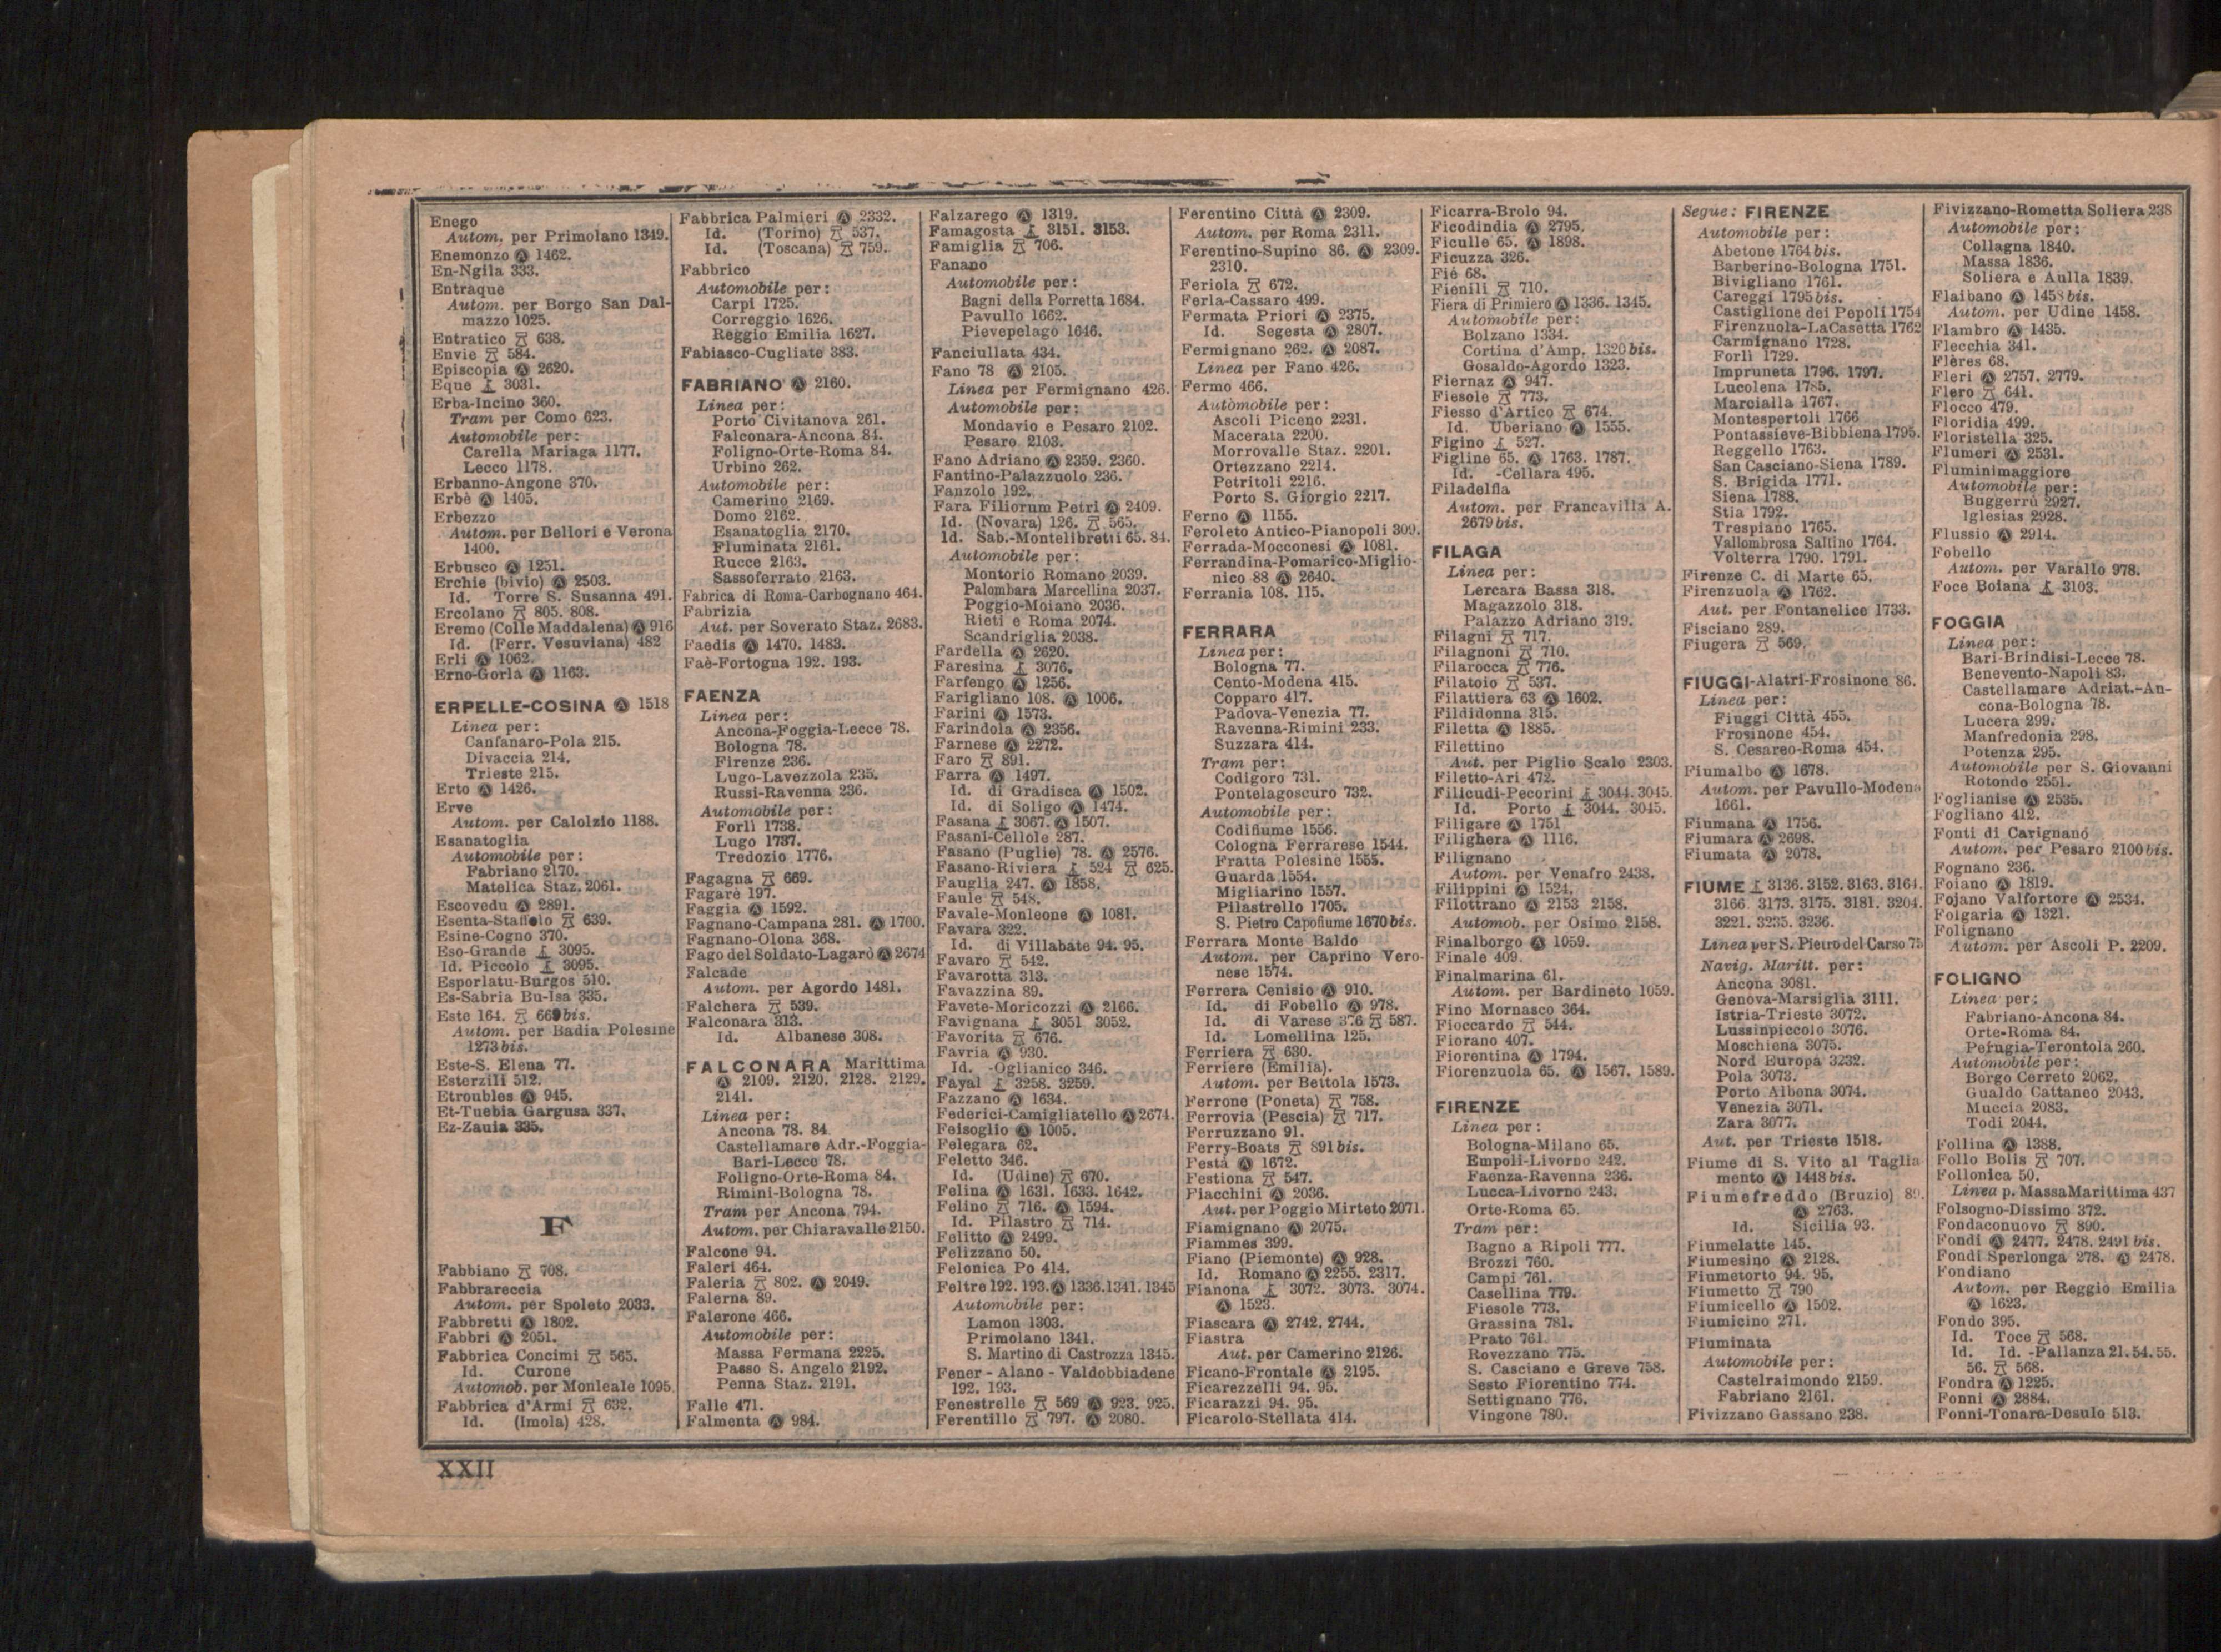 Enego
Autom. per Primolano 1349.
Enemonzo Ⓐ 1462.
En-Ngila 333.
Entraque
Autom. per Borgo San Dal-
mazzo 1025.
Entratico 638.
Envie 584.
Episcopia Ⓐ 2620.
Eque 3031.
Erba-Incino 360.
Tram per Como 623.
Automobile per:
Carella Mariaga 1177.
Lecco 1178.
Erbanno-Angone 370.
Erbè Ⓐ 1405.
Erbezzo
Autom. per Bellori e Verona
1400.
Erbusco Ⓐ 1251.
Erchie (bivio) Ⓐ 2503.
Id. Torre S. Susanna 491.
Ercolano 805. 808.
Eremo (Colle Maddalena) Ⓐ 916
Id. (Ferr. Vesuviana) 482
Erli Ⓐ 1062.
Erno-Gorla Ⓐ 1163.
ERPELLE-COSINA Ⓐ 1518
Linea per:
Canfanaro-Pola 215.
Divaccia 214.
Trieste 215.
Erto Ⓐ 1426.
Erve
Autom. per Calolzio 1188.
Esanatoglia
Automobile per:
Fabriano 2170.
Matelica Staz. 2061.
Escovedu Ⓐ 2891.
Esenta-Staffolo 639.
Esine-Cogno 370.
Eso-Grande 3095.
Id. Piccolo 3095.
Esporlatu-Burgos 510.
Es-Sabria Bu-Isa 335.
Este 164. 669 bis.
Autom. per Badia Polesine
1273 bis.
Este-S. Elena 77.
Esterzili 512.
Etroubles Ⓐ 945.
Et-Tuebia Gargusa 337.
Ez-Zauia 335.
F
Fabbiano 708.
Fabbrareccia
Autom. per Spoleto 2033.
Fabbretti Ⓐ 1802.
Fabbri Ⓐ 2051.
Fabbrica Concimi 565.
Id. Curone
Automob. per Monleale 1095
Fabbrica d'Armi 632.
Id. (Imola) 428.
Fabbrica Palmieri Ⓐ 2332.
Id. (Torino) 537.
Id. (Toscana) 759.
Fabbrico
Automobile per:
Carpi 1725.
Correggio 1626.
Reggio Emilia 1627.
Fabiasco-Cugliate 383.
FABRIANO Ⓐ 2160.
Linea per:
Porto Civitanova 261.
Falconara-Ancona 84.
Foligno-Orte-Roma 84.
Urbino 262.
Automobile per:
Camerino 2169.
Domo 2162.
Esanatoglia 2170.
Fluminata 2161.
Rucce 2163.
Sassoferrato 2163.
Fabrica di Roma-Carbognano 464.
Fabrizia
Aut. per Soverato Staz. 2683.
Faedis Ⓐ 1470. 1483.
Faè-Fortogna 192. 193.
FAENZA
Linea per:
Ancona-Foggia-Lecce 78.
Bologna 78.
Firenze 236.
Lugo-Lavezzola 235.
Russi-Ravenna 236.
Automobile per:
Forlì 1738.
Lugo 1737.
Tredozio 1776.
Fagagna 669.
Fagarè 197.
Faggia Ⓐ 1592.
Fagnano-Campana 281. Ⓐ 1700.
Fagnano-Olona 368.
Fago del Soldato-Lagarò Ⓐ 2674
Falcade
Autom. per Agordo 1481.
Falchera 539.
Falconara 313.
Id. Albanese 308.
FALCONARA Marittima
Ⓐ 2109. 2120. 2128. 2129.
2141.
Linea per:
Ancona 78. 84
Castellamare Adr.-Foggia-
Bari-Lecce 78.
Foligno-Orte-Roma 84.
Rimini-Bologna 78.
Tram per Ancona 794.
Autom. per Chiaravalle 2150.
Falcone 94.
Faleri 464.
Faleria 802. Ⓐ 2049.
Falerna 89.
Falerone 466.
Automobile per:
Massa Fermana 2225.
Passo S. Angelo 2192.
Penna Staz. 2191.
Falle 471.
Falmenta Ⓐ 984.
Falzarego Ⓐ 1319.
Famagosta 3151. 3153.
Famiglia 706.
Fanano
Automobile per:
Bagni della Porretta 1684.
Pavullo 1662.
Pievepelago 1646.
Fanciullata 434.
Fano 78 Ⓐ 2105.
Linea per Fermignano 426.
Automobile per:
Mondavio e Pesaro 2102.
Pesaro 2103.
Fano Adriano Ⓐ 2359. 2360.
Fantino-Palazzuolo 236.
Fanzolo 192.
Fara Filiorum Petri Ⓐ 2409.
Id. (Novara) 126. 565.
Id. Sab.-Montelibretti 65. 84.
Automobile per:
Montorio Romano 2039.
Palombara Marcellina 2037.
Poggio-Moiano 2036.
Rieti e Roma 2074.
Scandriglia 2038.
Fardella Ⓐ 2620.
Faresina 3076.
Farfengo Ⓐ 1256.
Farigliano 108. Ⓐ 1006.
Farini Ⓐ 1573.
Farindola Ⓐ 2356.
Farnese Ⓐ 2272.
Faro 891.
Farra Ⓐ 1497.
Id. di Gradisca Ⓐ 1502.
Id. di Soligo Ⓐ 1474.
Fasana 3067. Ⓐ 1507.
Fasani-Cellole 287.
Fasano (Puglie) 78. Ⓐ 2576.
Fasano-Riviera 524 625.
Fauglia 247. Ⓐ 1858.
Faule 548.
Favale-Monleone Ⓐ 1081.
Favara 322.
Id. di Villabate 94. 95.
Favaro 542.
Favarotta 313.
Favazzina 89.
Favete-Moricozzi Ⓐ 2166.
Favignana 3051 3052.
Favorita 676.
Favria Ⓐ 930.
Id. -Oglianico 346.
Fayal 3258. 3259.
Fazzano Ⓐ 1634.
Federici-Camigliatello Ⓐ 2674.
Feisoglio Ⓐ 1005.
Felegara 62.
Feletto 346.
Id. (Udine) 670.
Felina Ⓐ 1631. 1633. 1642.
Felino 716. Ⓐ 1594.
Id. Pilastro 714.
Felitto Ⓐ 2499.
Felizzano 50.
Felonica Po 414.
Feltre 192. 193. Ⓐ 1336. 1341. 1345
Automobile per:
Lamon 1303.
Primolano 1341.
S. Martino di Castrozza 1345.
Fener - Alano - Valdobbiadene
192. 193.
Fenestrelle 569 Ⓐ 923. 925.
Ferentillo 797. Ⓐ 2080.
Ferentino Città Ⓐ 2309.
Autom. per Roma 2311.
Ferentino-Supino 86. Ⓐ 2309.
2310.
Feriola 672.
Ferla-Cassaro 499.
Fermata Priori Ⓐ 2375.
Id. Segesta Ⓐ 2807.
Fermignano 262. Ⓐ 2087.
Linea per Fano 426.
Fermo 466.
Automobile per:
Ascoli Piceno 2231.
Macerata 2200.
Morrovalle Staz. 2201.
Ortezzano 2214.
Petritoli 2216.
Porto S. Giorgio 2217.
Ferno Ⓐ 1155.
Feroleto Antico-Pianopoli 309.
Ferrada-Mocconesi Ⓐ 1081.
Ferrandina-Pomarico-Miglio-
nico 88 Ⓐ 2640.
Ferrania 108. 115.
FERRARA
Linea per:
Bologna 77.
Cento-Modena 415.
Copparo 417.
Padova-Venezia 77.
Ravenna-Rimini 233.
Suzzara 414.
Tram per:
Codigoro 731.
Pontelagoscuro 732.
Automobile per:
Codifiume 1556.
Cologna Ferrarese 1544.
Fratta Polesine 1555.
Guarda 1554.
Migliarino 1557.
Pilastrello 1705.
S. Pietro Capofiume 1670 bis.
Ferrara Monte Baldo
Autom. per Caprino Vero-
nese 1574.
Ferrera Cenisio Ⓐ 910.
Id. di Fobello Ⓐ 978.
Id. di Varese 376 587.
Id. Lomellina 125.
Ferriera 630.
Ferriere (Emilia).
Autom. per Bettola 1573.
Ferrone (Poneta) 758.
Ferrovia (Pescia) 717.
Ferruzzano 91.
Ferry-Boats 891 bis.
Festà Ⓐ 1672.
Festiona 547.
Fiacchini Ⓐ 2036.
Aut. per Poggio Mirteto 2071.
Fiamignano Ⓐ 2075.
Fiammes 399.
Fiano (Piemonte) Ⓐ 928.
Id. Romano Ⓐ 2255. 2317.
Fianona 3072. 3073. 3074.
Ⓐ 1523.
Fiascara Ⓐ 2742. 2744.
Fiastra
Aut. per Camerino 2126.
Ficano-Frontale Ⓐ 2195.
Ficarezzelli 94. 95.
Ficarazzi 94. 95.
Ficarolo-Stellata 414.
Ficarra-Brolo 94.
Ficodindia Ⓐ 2795.
Ficulle 65. Ⓐ 1898.
Ficuzza 326.
Fié 68.
Fienili 710.
Fiera di Primiero Ⓐ 1336. 1345.
Automobile per:
Bolzano 1334.
Cortina d'Amp. 1320 bis.
Gosaldo-Agordo 1323.
Fiernaz Ⓐ 947.
Fiesole 773.
Fiesso d'Artico 674.
Id. Uberiano Ⓐ 1555.
Figino 527.
Figline 65. Ⓐ 1763. 1787.
Id. -Cellara 495.
Filadelfia
Autom. per Francavilla A.
2679 bis.
FILAGA
Linea per:
Lercara Bassa 318.
Magazzolo 318.
Palazzo Adriano 319.
Filagni 717.
Filagnoni 710.
Filarocca 776.
Filatoio 537.
Filattiera 63 Ⓐ 1602.
Fildidonna 315.
Filetta Ⓐ 1885.
Filettino
Aut. per Piglio Scalo 2303.
Filetto-Ari 472.
Filicudi-Pecorini 3044. 3045.
Id. Porto 3044. 3045.
Filigare Ⓐ 1751
Filighera Ⓐ 1116.
Filignano
Autom. per Venafro 2438.
Filippini Ⓐ 1524.
Filottrano Ⓐ 2153 2158.
Automob. per Osimo 2158.
Finalborgo Ⓐ 1059.
Finale 409.
Finalmarina 61.
Autom. per Bardineto 1059.
Fino Mornasco 364.
Fioccardo 544.
Fiorano 407.
Fiorentina Ⓐ 1794.
Fiorenzuola 65. Ⓐ 1567. 1589.
FIRENZE
Linea per:
Bologna-Milano 65.
Empoli-Livorno 242.
Faenza-Ravenna 236.
Lucca-Livorno 243.
Orte-Roma 65.
Tram per:
Bagno a Ripoli 777.
Brozzi 760.
Campi 761.
Casellina 779.
Fiesole 773.
Grassina 781.
Prato 761.
Rovezzano 775.
S. Casciano e Greve 758.
Sesto Fiorentino 774.
Settignano 776.
Vingone 780.
Segue: FIRENZE
Automobile per:
Abetone 1764 bis.
Barberino-Bologna 1751.
Bivigliano 1761.
Careggi 1795 bis.
Castiglione dei Pepoli 1754
Firenzuola-LaCasetta 1762
Carmignano 1728.
Forlì 1729.
Impruneta 1796. 1797.
Lucolena 1785.
Marcialla 1767.
Montespertoli 1766
Pontassieve-Bibbiena 1795.
Reggello 1763.
San Casciano-Siena 1789.
S. Brigida 1771.
Siena 1788.
Stia 1792.
Trespiano 1765.
Vallombrosa Saltino 1764.
Volterra 1790. 1791.
Firenze C. di Marte 65.
Firenzuola Ⓐ 1762.
Aut. per Fontanelice 1733.
Fisciano 289.
Fiugera 569.
FIUGGI-Alatri-Frosinone 86.
Linea per:
Fiuggi Città 455.
Frosinone 454.
S. Cesareo-Roma 454.
Fiumalbo Ⓐ 1678.
Autom. per Pavullo-Modena
1661.
Fiumana Ⓐ 1756.
Fiumara Ⓐ 2698.
Fiumata Ⓐ 2078.
FIUME 3136. 3152. 3163. 3164.
3166. 3173. 3175. 3181. 3204.
3221. 3235. 3236.
Linea per S. Pietro del Carso 75
Navig. Maritt. per:
Ancona 3081.
Genova-Marsiglia 3111.
Istria-Trieste 3072.
Lussinpiccolo 3076.
Moschiena 3075.
Nord Europa 3232.
Pola 3073.
Porto Albona 3074.
Venezia 3071.
Zara 3077.
Aut. per Trieste 1518.
Fiume di S. Vito al Taglia
mento Ⓐ 1448 bis.
Fiumefreddo (Bruzio) 89.
Ⓐ 2763.
Id. Sicilia 93.
Fiumelatte 145.
Fiumesino Ⓐ 2128.
Fiumetorto 94. 95.
Fiumetto 790
Fiumicello Ⓐ 1502.
Fiumicino 271.
Fiuminata
Automobile per:
Castelraimondo 2159.
Fabriano 2161.
Fivizzano Gassano 238.
Fivizzano-Rometta Soliera 238
Automobile per:
Collagna 1840.
Massa 1836.
Soliera e Aulla 1839.
Flaibano Ⓐ 1458 bis.
Autom. per Udine 1458.
Flambro Ⓐ 1435.
Flecchia 341.
Flères 68.
Fleri Ⓐ 2757. 2779.
Flero 641.
Flocco 479.
Floridia 499.
Floristella 325.
Flumeri Ⓐ 2531.
Fluminimaggiore
Automobile per:
Buggerru 2927.
Iglesias 2928.
Flussio Ⓐ 2914.
Fobello
Autom. per Varallo 978.
Foce Boiana 3103.
FOGGIA
Linea per:
Bari-Brindisi-Lecce 78.
Benevento-Napoli 83.
Castellamare Adriat.-An-
cona-Bologna 78.
Lucera 299.
Manfredonia 298.
Potenza 295.
Automobile per S. Giovanni
Rotondo 2551.
Foglianise Ⓐ 2535.
Fogliano 412.
Fonti di Carignano
Autom. per Pesaro 2100 bis.
Fognano 236.
Foiano Ⓐ 1819.
Fojano Valfortore Ⓐ 2534.
Folgaria Ⓐ 1321.
Folignano
Autom. per Ascoli P. 2209.
FOLIGNO
Linea per:
Fabriano-Ancona 84.
Orte-Roma 84.
Perugia-Terontola 260.
Automobile per:
Borgo Cerreto 2062.
Gualdo Cattaneo 2043.
Muccia 2083.
Todi 2044.
Follina Ⓐ 1388.
Follo Bolis 707.
Follonica 50.
Linea p. Massa Marittima 437
Folsogno-Dissimo 372.
Fondaconuovo 890.
Fondi Ⓐ 2477. 2478. 2491 bis.
Fondi Sperlonga 278. Ⓐ 2478.
Fondiano
Autom. per Reggio Emilia
Ⓐ 1623.
Fondo 395.
Id. Toce 568.
Id. Id. -Pallanza 21. 54. 55.
56. 568.
Fondra Ⓐ 1225.
Fonni Ⓐ 2884.
Fonni-Tonara-Desulo 513.
XXII